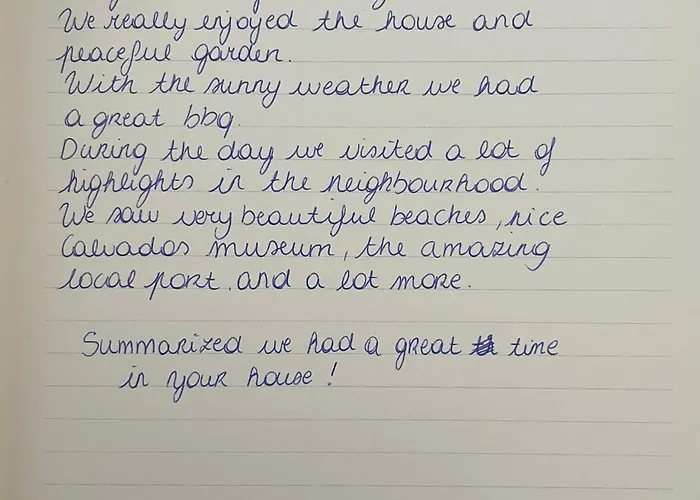 We really enjoyed the house and
peaceful garden.
With the sunny weather we had
a great bbq.
During the day we visited a lot of
highlights in the neighbourhood.
We saw very beautiful beaches, nice
Calvados museum, the amazing
local port, and a lot more.
Summarized we had a great time
in your house!